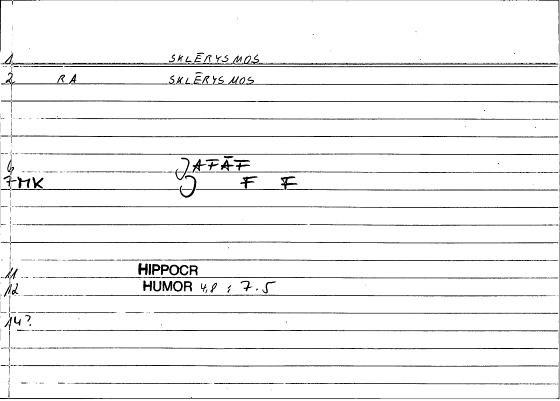 1 SKLĒRYSMOS
2 RA SKLĒRYSMOS
6
7 MK
11 HIPPOCR
12 HUMOR 4,8 ; 7.5
14?